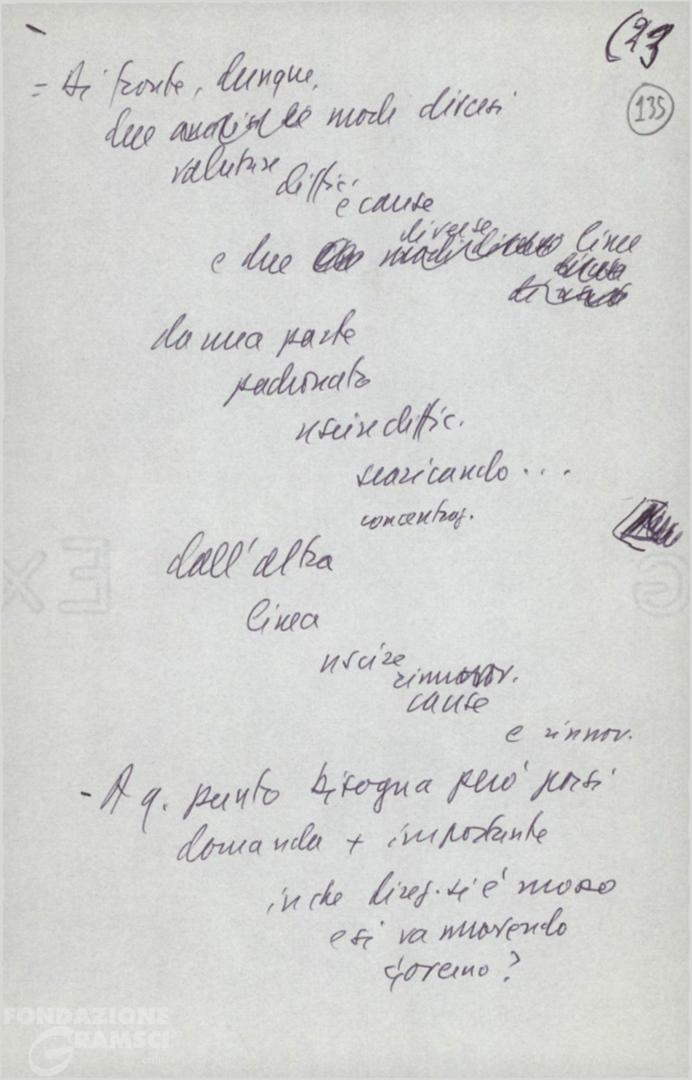 (23
135
= Di fronte, dunque,
due modi diversi
valutare
diffic.
e cause
diverse
e due linee
da una parte
padronato
uscire diffic.
scaricando...
concentraz.
dall'altra
linea
uscire
rimuov.
cause
e rinnov.
- A q. punto bisogna però porsi
domanda + importante
in che direz. si è mosso
e si va muovendo
governo?
FONDAZIONE
GRAMSCI